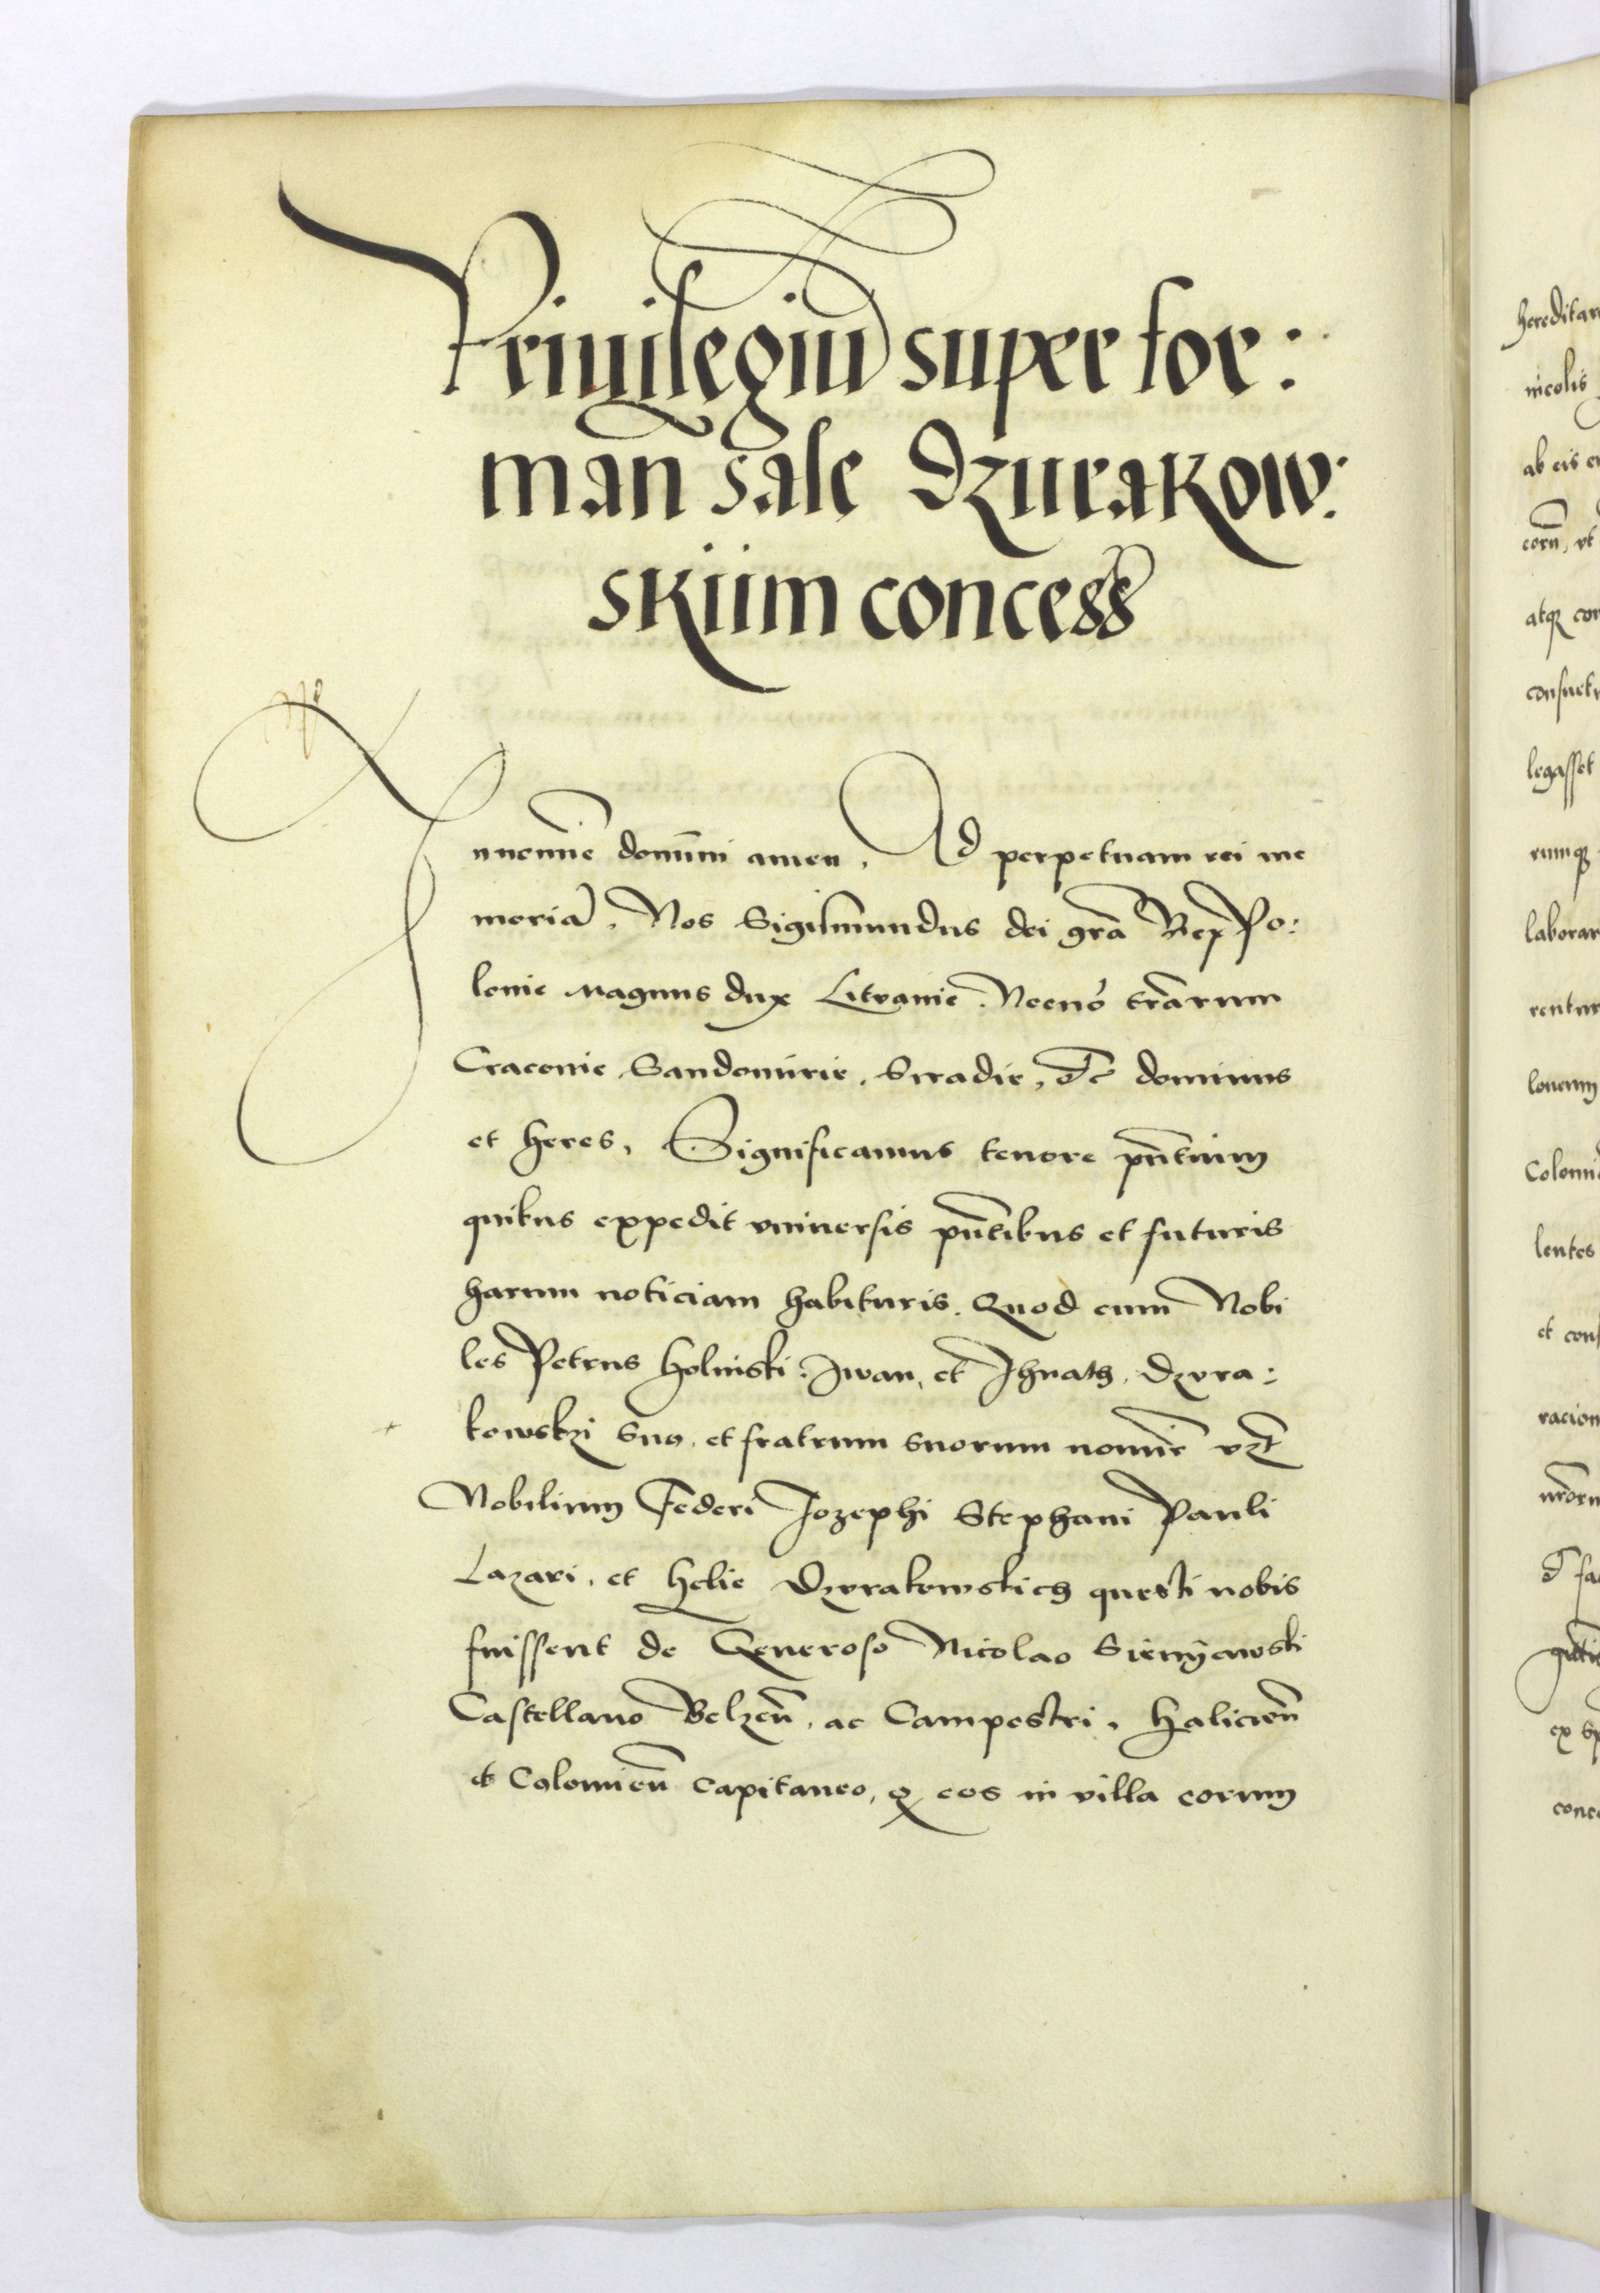 Priuilegiu super for:
man sale Dzurakow:
skiim concess
In nomie domini amen. Ad perpetuam rei me
moria. Nos Sigismundus dei gra Rex Po:
lonie magnus dux Litvanie. Necno trarum
Cracovie Sandomirie. Siradie, etc dominus
et heres, Significamus tenore pntium
quibus expedit vniuersis pntibus et futuris
harum noticiam habituris. Quod cum Nobi
les Petrus Holinski. Iwan, et Ihnath. Dzvra:
kowskzi suo, et fratrum suorum nomie vzt
Nobilium Federi Iozephi Stephani Pauli
Lazari, et Helie Dzvrakowskich questi nobis
fuissent de Generoso Nicolao Sienyawski
Castellano Belzen, ac Campestri, Halicien
et Colomien Capitaneo, q eos in villa eorum
hereditar
incolis
ab eis
eorn, vt
atq
consuet
legasset
rumq
laborar
rentur
Colomi
lentes
et cons
racion